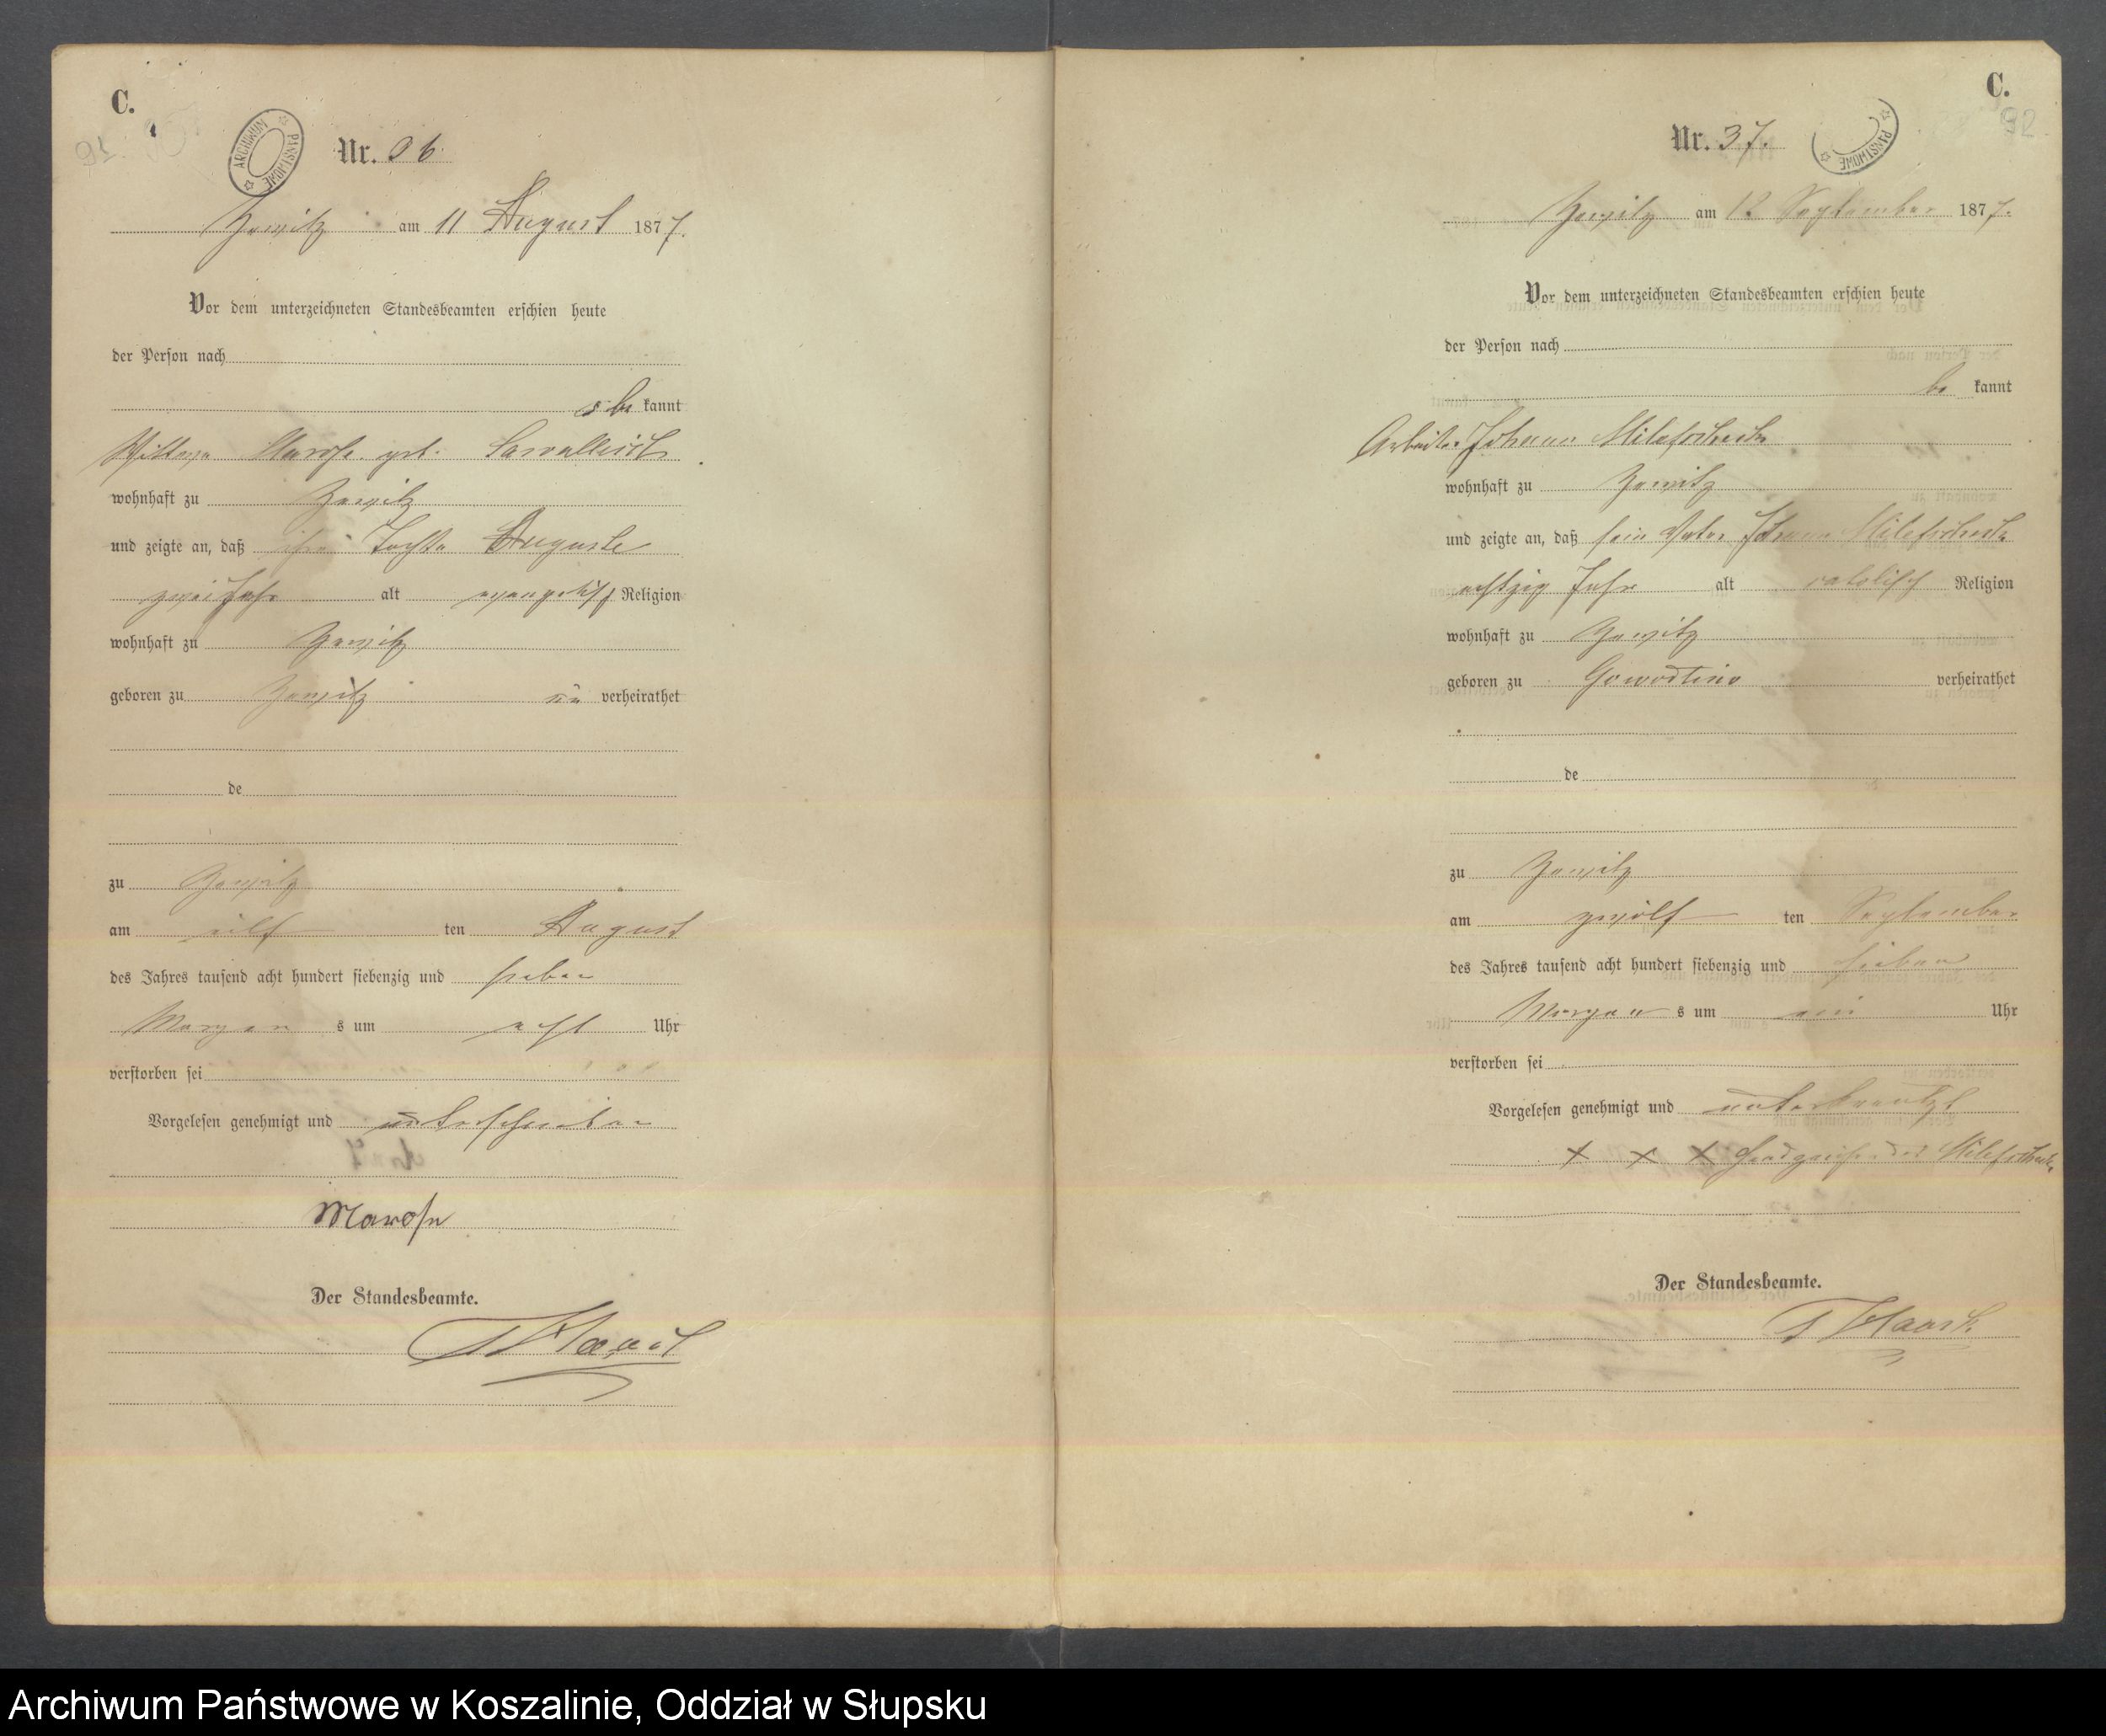 C.
ARCHIWUM PAŃSTWOWE
Nr. 36.
Zewitz am 11 August 1877.
Vor dem unterzeichneten Standesbeamten erschien heute
der Person nach
be kannt
Wittwe Marose geb.
wohnhaft zu Zewitz
und zeigte an, daß ihre Tochter Auguste
zwei Jahr alt evangelisch Religion
wohnhaft zu Zewitz
geboren zu Zewitz un verheirathet
de
zu Zewitz
am eilf ten August
des Jahres tausend acht hundert siebenzig und sieben
Morgen s um acht Uhr
verstorben sei
Vorgelesen genehmigt und unterschrieben
Marose
Der Standesbeamte.
C.
92
PAŃSTWOWE
Nr. 37.
Zewitz am 12 September 1877.
Vor dem unterzeichneten Standesbeamten erschien heute
der Person nach
be kannt
Arbeiter Johann
wohnhaft zu Zewitz
und zeigte an, daß sein Vater Johann
achtzig Jahr alt catolisch Religion
wohnhaft zu Zewitz
geboren zu verheirathet
de
zu Zewitz
am zwölf ten September
des Jahres tausend acht hundert siebenzig und sieben
Morgen s um ein Uhr
verstorben sei
Vorgelesen genehmigt und unterkreutzt
x x x Handzeichen des
Der Standesbeamte.
Archiwum Państwowe w Koszalinie, Oddział w Słupsku